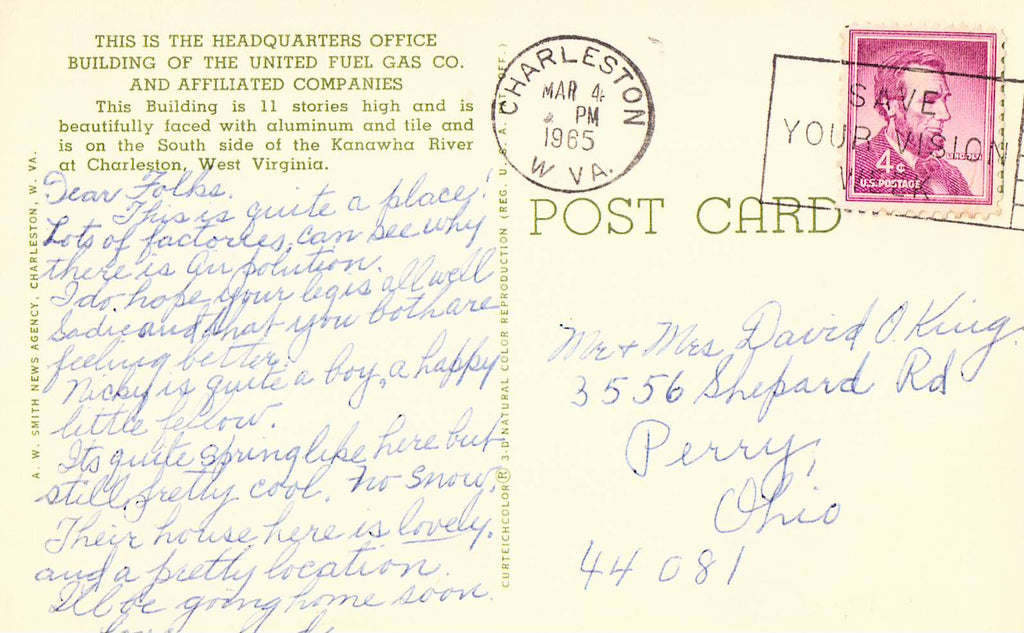 THIS IS THE HEADQUARTERS OFFICE
BUILDING OF THE UNITED FUEL GAS CO.
AND AFFILIATED COMPANIES
This Building is 11 stories high and is
beautifully faced with aluminum and tile and
is on the South side of the Kanawha River
at Charleston, West Virginia.
Dear Folks.
This is quite a place!
Lots of factories, can see why
there is air polution.
I do hope your leg is all well
Sadie and that you both are
feeling better.
Nicky is quite a boy, a happy
little fellow.
Its quite springlike here but
still pretty cool. No snow.
Their house here is lovely.
and a pretty location.
I'll be going home soon.
A. W. SMITH NEWS AGENCY, CHARLESTON, W. VA.
CURTEICHCOLOR® 3-D NATURAL COLOR REPRODUCTION (REG. U. S. A. PAT. OFF.)
CHARLESTON
MAR 4
PM
1965
W VA.
SAVE
YOUR VISION
WEEK
LINCOLN
4¢
U.S. POSTAGE
POST CARD
Mr + Mrs David O. King.
3556 Shepard Rd
Perry,
Ohio
44081